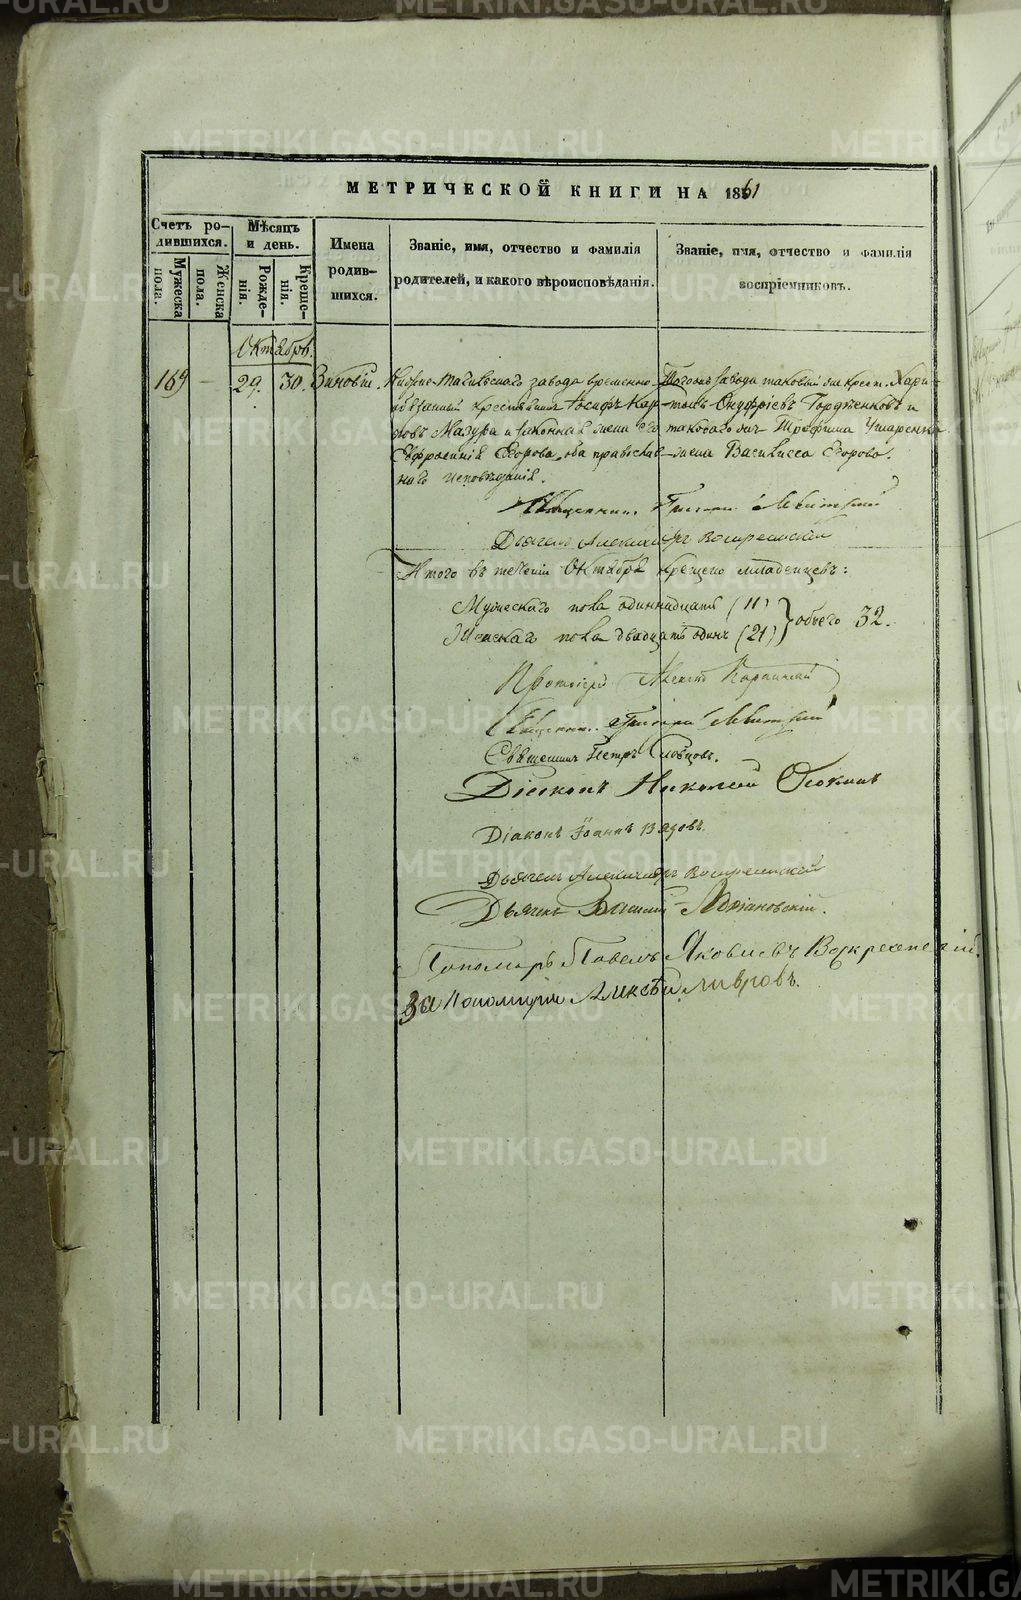 МЕТРИЧЕСКОЙ КНИГИ НА 1861
Счетъ ро-
дившихся.
Мужеска
пола.
Женска
пола.
Мѣсяцъ
и день.
Рожде-
нія.
Креще-
нія.
Имена
родив-
шихся.
Званіе, имя, отчество и фамилія
родителей, и какого вѣроисповѣданія.
Званіе, имя, отчество и фамилія
воспріемниковъ.
Октябрь.
169 — 29. 30. Зиновій.
Нижне-Тагильскаго завода временно
обязанный крестьянинъ Іосифъ Кар-
повъ Мазура и законная жена его
Евфросинія Егорова, оба православ-
наго исповѣданія.
Тогожъ завода таковый же крест. Хари-
тонъ Онуфріевъ Гордѣенковъ и
таковаго же Трофима
жена Василисса Егорова.
Священникъ Григорій Левитскій
Дьячекъ Александръ Воскресенскій
Итого въ теченіи Октября крещено младенцевъ:
Мужескаго пола одиннадцать (11)
Женскаго пола двадцать одинъ (21)
обоего 32.
Протоіерей Алексій
Священникъ Григорій Левитскій
Священникъ Петръ Словцовъ.
Діаконъ Николай Осокинъ
Діаконъ Іоаннъ
Дьячекъ Александръ Воскресенскій
Дьячекъ Василій
Пономарь Павелъ Яковлевъ Воскресенскій.
За Пономаря Алексѣй Лавровъ.
METRIKI.GASO-URAL.RU